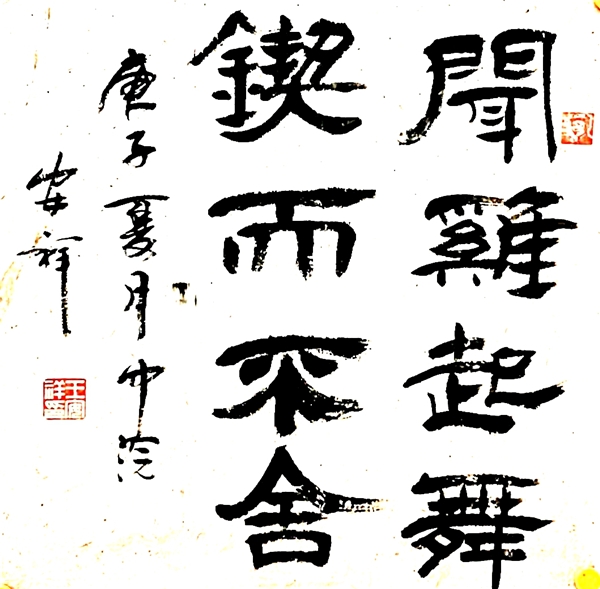 聞雞起舞
鍥而不舍
庚子夏月中浣
安祥